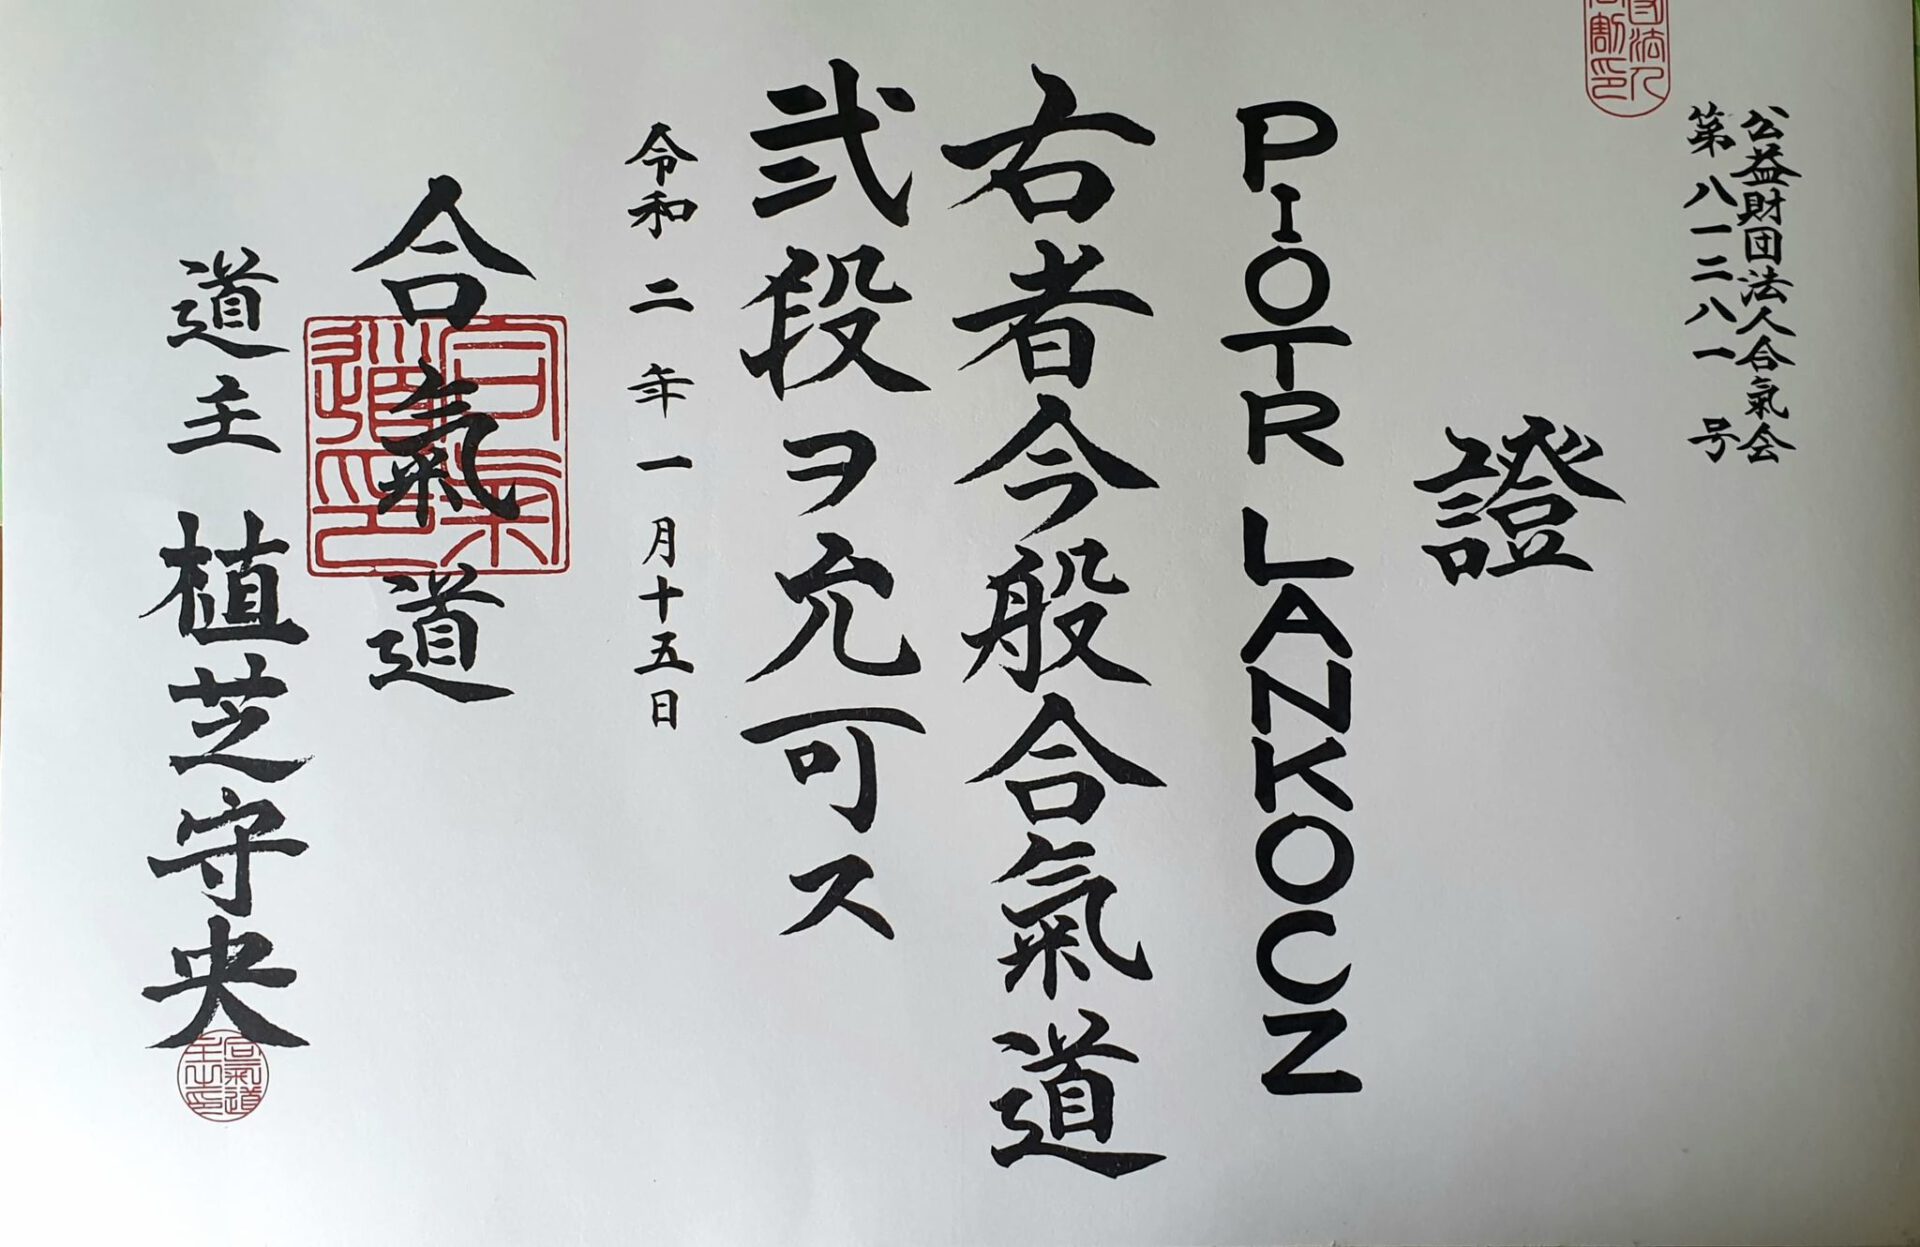 公益財団法人合氣会
第八一二八一号
證
PIOTR LANKOCZ
右者今般合氣道
弐段ヲ允可ス
令和二年一月十五日
合氣道
道主 植芝守央